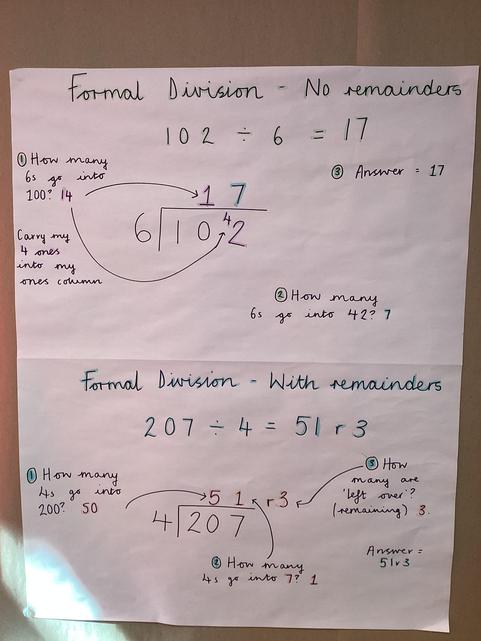 Formal Division - No remainders
102 ÷ 6 = 17
① How many
6s go into
100? 14
③ Answer = 17
1 7
6 1 0 4 2
Carry my
4 ones
into my
ones column
② How many
6s go into 42? 7
Formal Division - With remainders
207 ÷ 4 = 51 r 3
① How many
4s go into
200? 50
③ How
many are
'left over'?
(remaining) 3.
5 1 r 3
4 2 0 7
② How many
4s go into 7? 1
Answer =
51r3